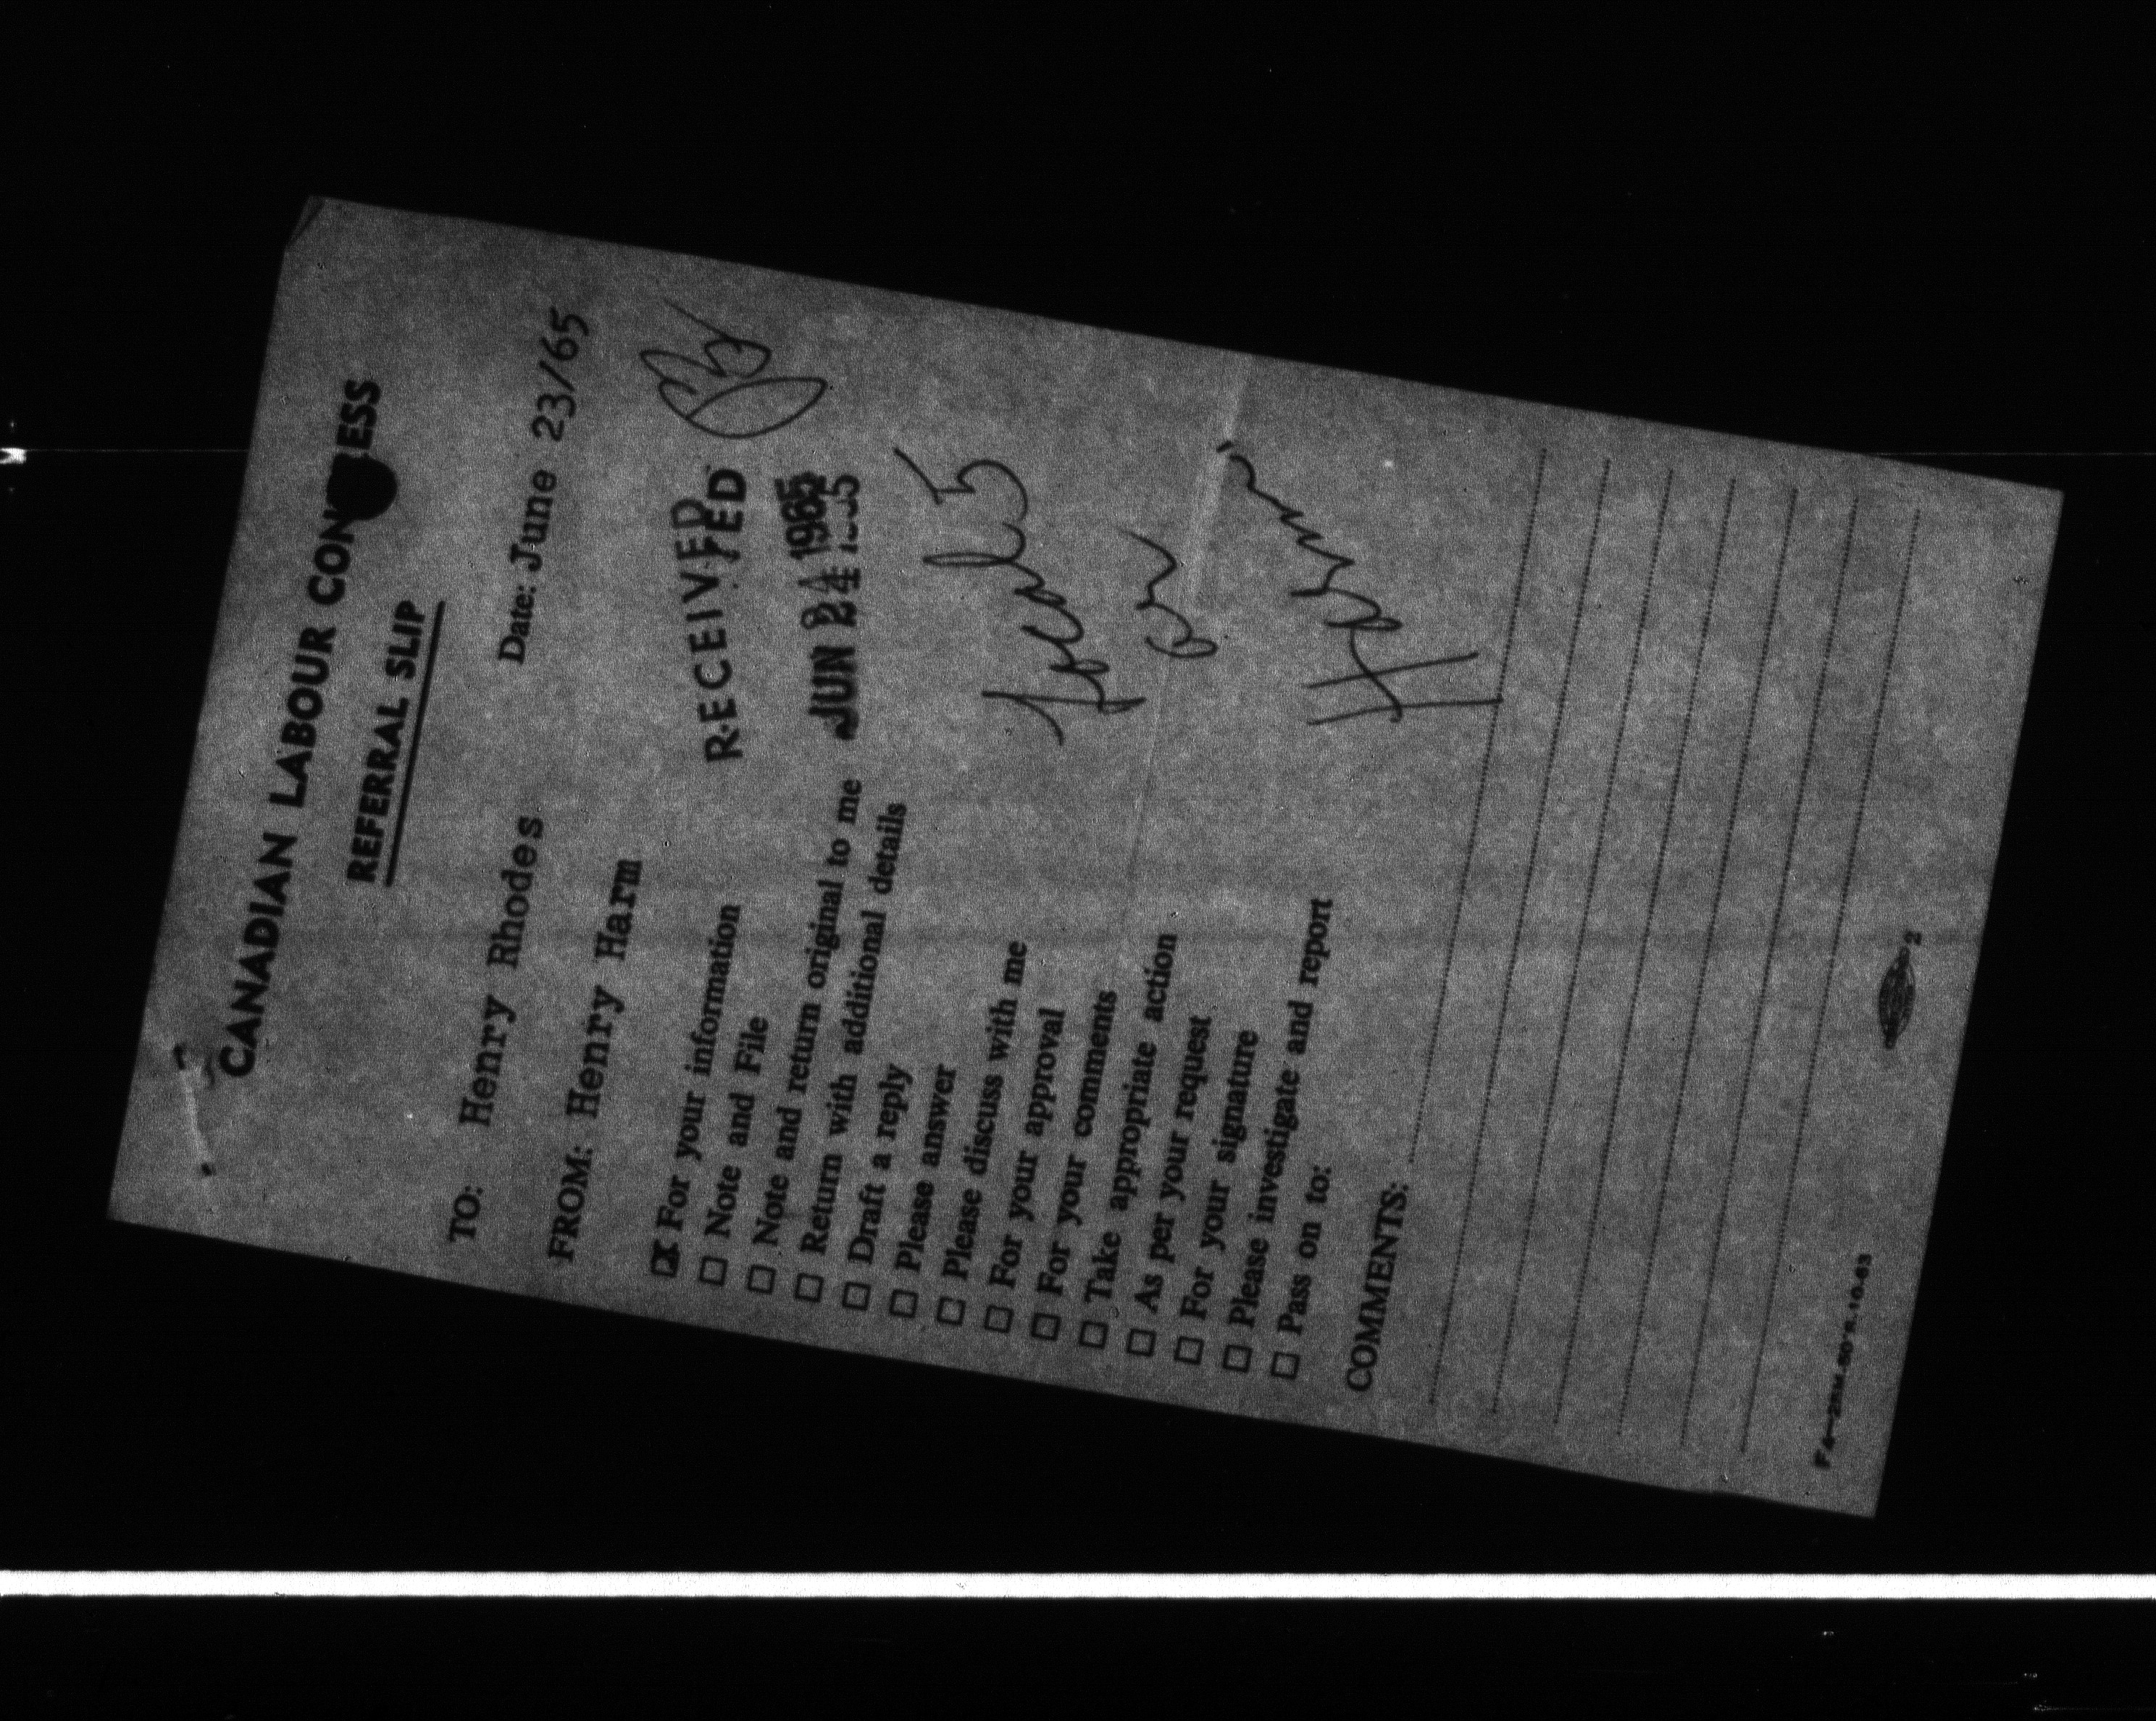 CANADIAN LABOUR CON ESS
REFERRAL SLIP
TO: Henry Rhodes
Date: June 23/65
FROM: Henry Harm
RECEIVED
JUN 24 1965
☒ For your information
☐ Note and File
☐ Note and return original to me
☐ Return with additional details
☐ Draft a reply
☐ Please answer
☐ Please discuss with me
☐ For your approval
☐ For your comments
☐ Take appropriate action
☐ As per your request
☐ For your signature
☐ Please investigate and report
☐ Pass on to:
COMMENTS:
2